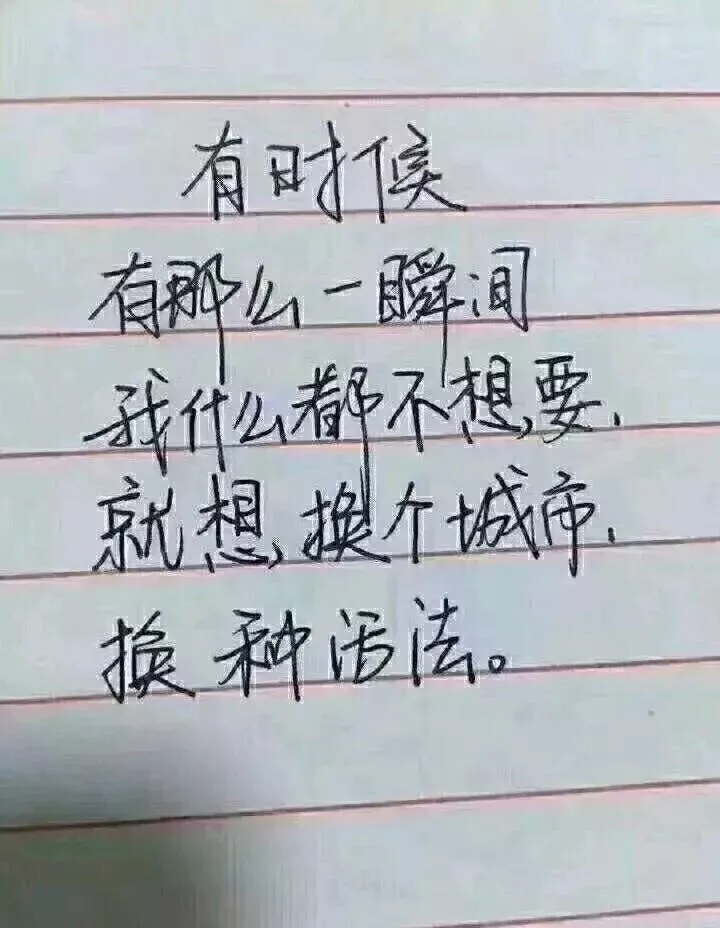 有时候
有那么一瞬间
我什么都不想要.
就想换个城市.
换种活法。